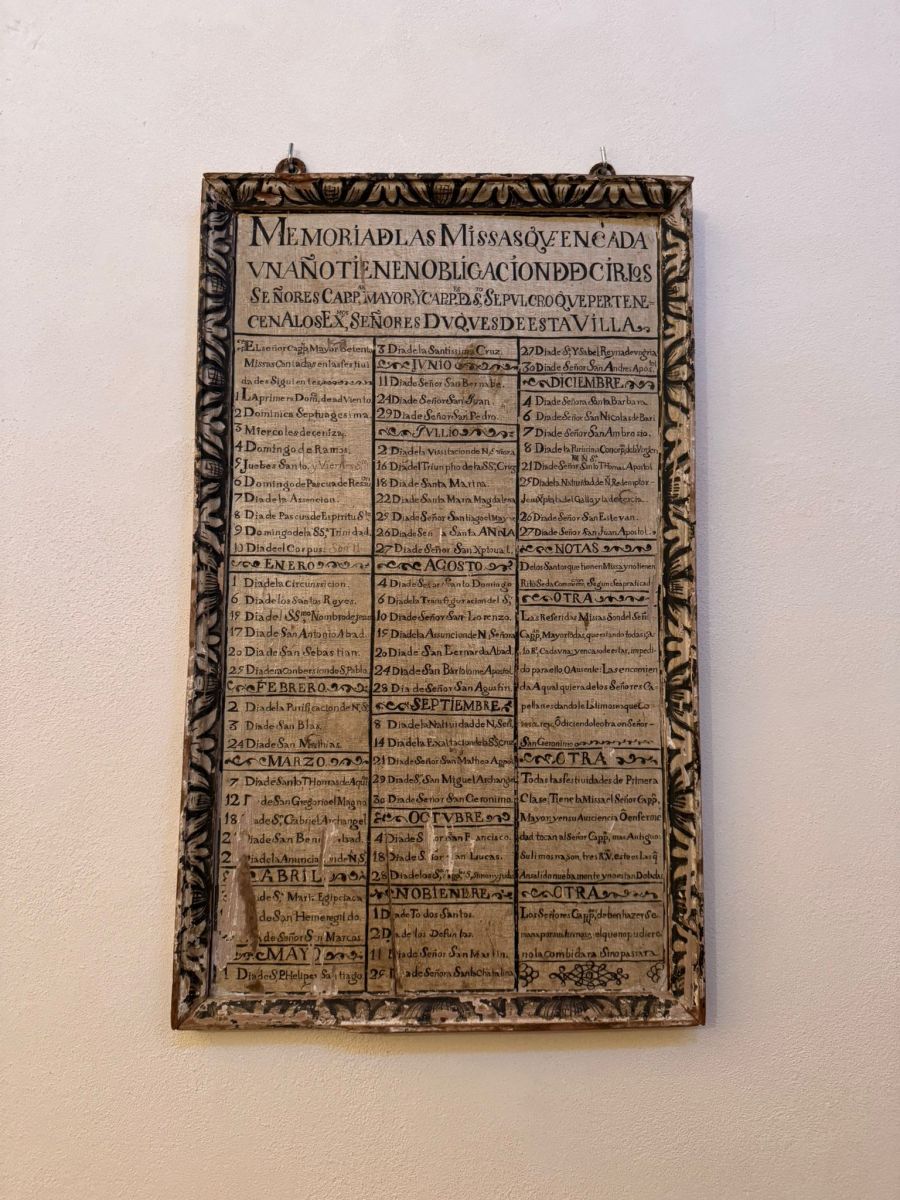 MEMORIA DLAS MISSAS QVE EN CADA
VN AÑO TIENEN OBLIGACION D DCIR LOS
SEÑORES CAPP.ᴬᴺ MAYOR, Y CAPP.ᴱˢ D S.ᵀᴼ SEPVLCRO QVE PERTENE-
CEN A LOS EX.ᴹᴼˢ SEÑORES DVQVES DE ESTA VILLA
EL señor Capp.ⁿ Mayor Setenta
Missas Cantadas en las festiui
dades Siguientes
1 LA primera Dom.ᶜᵃ de ad Viento
2 Dominica Septuagesima
3 Miercoles de ceniza
4 Domingo de Ramos
5 Juebes Santo
6 Domingo de Pascua de
7 Dia de la Assencion
8 Dia de Pascua de Espiritu S.ᵗᵒ
9 Domingo de la SS.ᵃ Trinidad
10 Dia de el Corpus
ENERO
1 Dia de la Circunssicion
6 Dia de los Santos Reyes
15 Dia del SS.ᵐᵒ Nombre de Jesus
17 Dia de San Antonio Abad
20 Dia de San Sebastian
25 Dia de la Conbersion de S. Pablo
FEBRERO
2 Dia de la Purificacion de N. S.ª
3 Dia de San Blas
24 Dia de San Mathias
MARZO
7 Dia de Santo THomas de Aqui
12 de San Gregorio el Magno
18 de S.ⁿ Gabriel Archangel
2 Dia de San
2 Dia de la Anuncia de N. S.ª
ABRIL
de S.ᵃ Maria Egipciaca
de San Hemenegildo
de Señor San Marcos
MAYO
1 Dia de S. PHelipe y Santiago
3 Dia de la Santissima Cruz
JVNIO
11 Dia de Señor San Bernabe
24 Dia de Señor San Juan
29 Dia de Señor San Pedro
JVLLIO
2 Dia de la Vissitacion de N. Señora
16 Dia del Triumpho de la SS.ᵃ Cruz
18 Dia de Santa Marina
22 Dia de Santa Maria Magdalena
25 Dia de Señor Santiago el Mayor
26 Dia de Señora Santa ANNA
27 Dia de Señor San Xptoual
AGOSTO
4 Dia de Señor Santo Domingo
6 Dia de la Transfiguracion del S.ʳ
10 Dia de Señor San Lorenzo
15 Dia de la Assuncion de N. Señora
20 Dia de San Bernardo Abad
24 Dia de San Bartolome Apostol
28 Dia de Señor San Agustin
SEPTIEMBRE
8 Dia de la Natiuidad de N. Señ.ᵃ
14 Dia de la Exaltacion de la SS.ᵃ Cruz
21 Dia de Señor San Matheo Appo.
29 Dia de S.ʳ San Miguel Archangel
30 Dia de Señor San Geronimo
OCTVBRE
4 Dia de Señor San Francisco
18 Dia de Señor San Lucas
28 Dia de los S.ᵗᵒˢ S.ⁿ Simon y Judas
NOBIENBRE
1 Dia de Todos Santos
2 Dia de los Defuntos
11 Dia de Señor San Martin
25 Dia de Señora Santa Chatalina
27 Dia de S.ᵗᵃ YSabel Reyna de vngria
30 Dia de Señor San Andres Apos.ᵗᵒˡ
DICIEMBRE
4 Dia de Señora Santa Barbara
6 Dia de Señor San Nicolas de Bari
7 Dia de Señor San Ambrosio
8 Dia de la Purissima de la Virgen
21 Dia de Señor Santo THomas Apostol
25 Dia de la Natiuidad de N. Redemptor
Jesu Xpto la del Gallo y la de tercia
26 Dia de Señor San Estevan
27 Dia de Señor San Juan Apostol
NOTAS
De los Santos que tienen Missa y no tienen
Rito Se da Segun Sea practicad
OTRA
Las Referidas Missas Son del Señ.ʳ
Capp.ⁿ Mayor todas, que estando todas
Cada vna; y en caso de estar, impedi
do para ello, O Ausente: Las encomien
da A qualquiera de los Señores Ca-
pellanes dandole La limosna que Lo
diciendole otro en Señor
San Geronimo
OTRA
Todas las festiuidades de Primera
Clase, Tiene la Missa el Señor Capp.ⁿ
Mayor, y en su Auciencia O enferme
dad tocan al Señor Capp.ⁿ mas Antiguo
Su limosna son tres R.ˢ V.ⁿ
An salido nuebamente y no estan Dotadas
OTRA
Los Señores Capp.ᵉˢ deben hazer Se-
mana por sus turnos, el que no pudiere
no la combidara Sino pasara